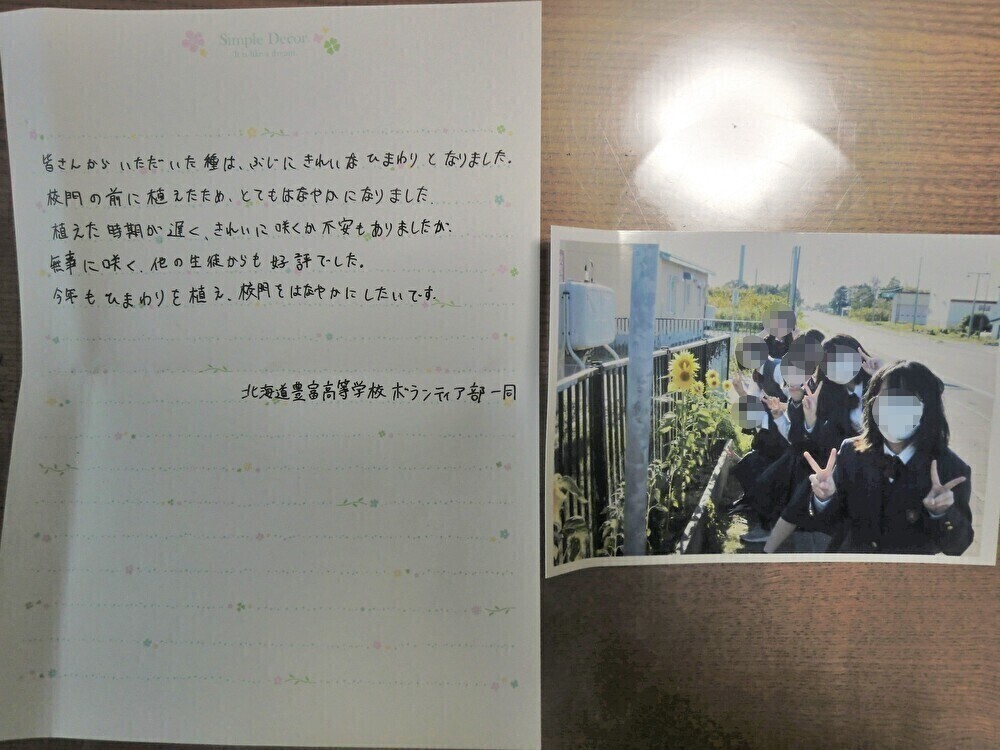 Simple Decor
皆さんからいただいた種は、ぶじにきれいなひまわりとなりました。
校門の前に植えたため、とてもはなやかになりました。
植えた時期が遅く、きれいに咲くか不安もありましたが、
無事に咲く、他の生徒からも好評でした。
今年もひまわりを植え、校門をはなやかにしたいです。
北海道豊富高等学校 ボランティア部一同